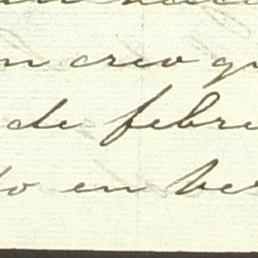 n creo qu
de febre
to en be